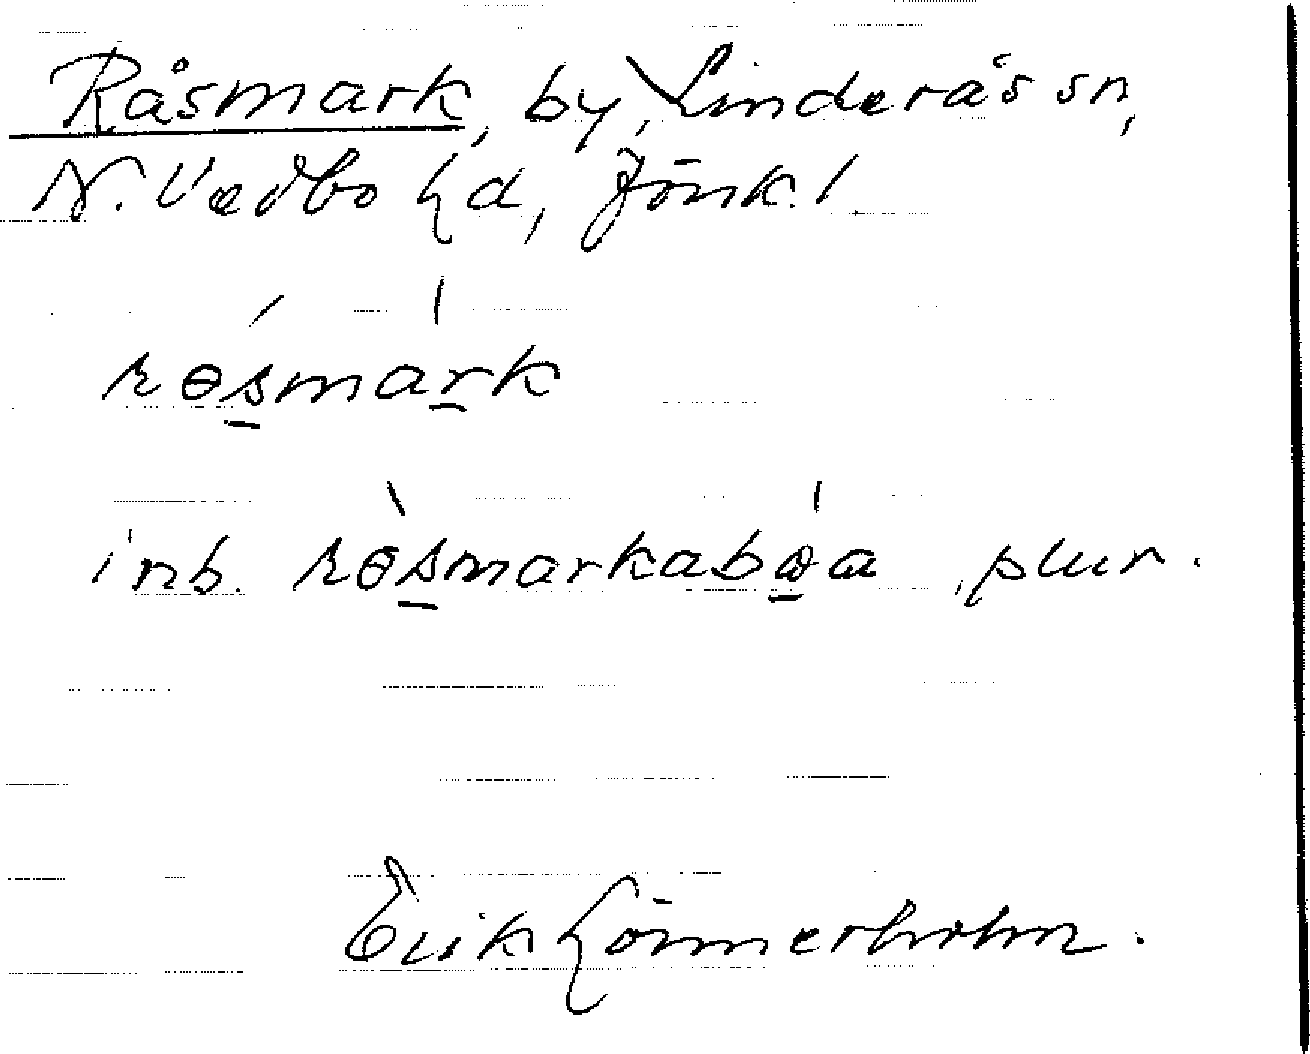 Råsmark, by, Linderås sn,
N. Vedbo hd, Jönk. l.
rɵsmark
inb. rɵsmarkabøa, plur.
Erik Lönnerholm.